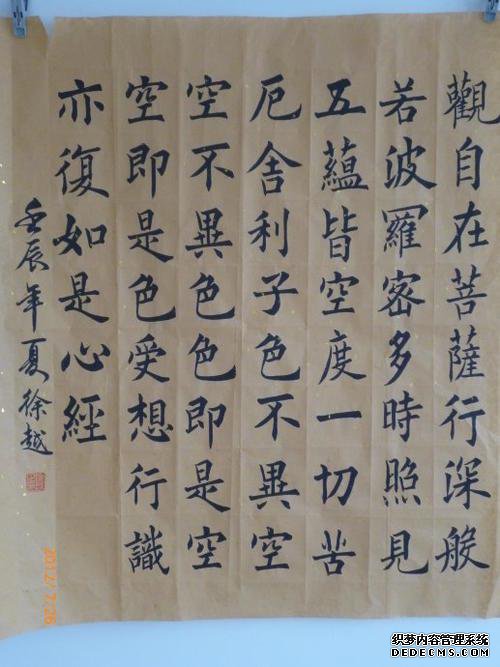 觀自在菩薩行深般
若波羅密多時照見
五蘊皆空度一切苦
厄舍利子色不異空
空不異色色即是空
空即是色受想行識
亦復如是心經
壬辰年夏徐越
2012/7/26
织梦内容管理系统
DEDECMS.COM